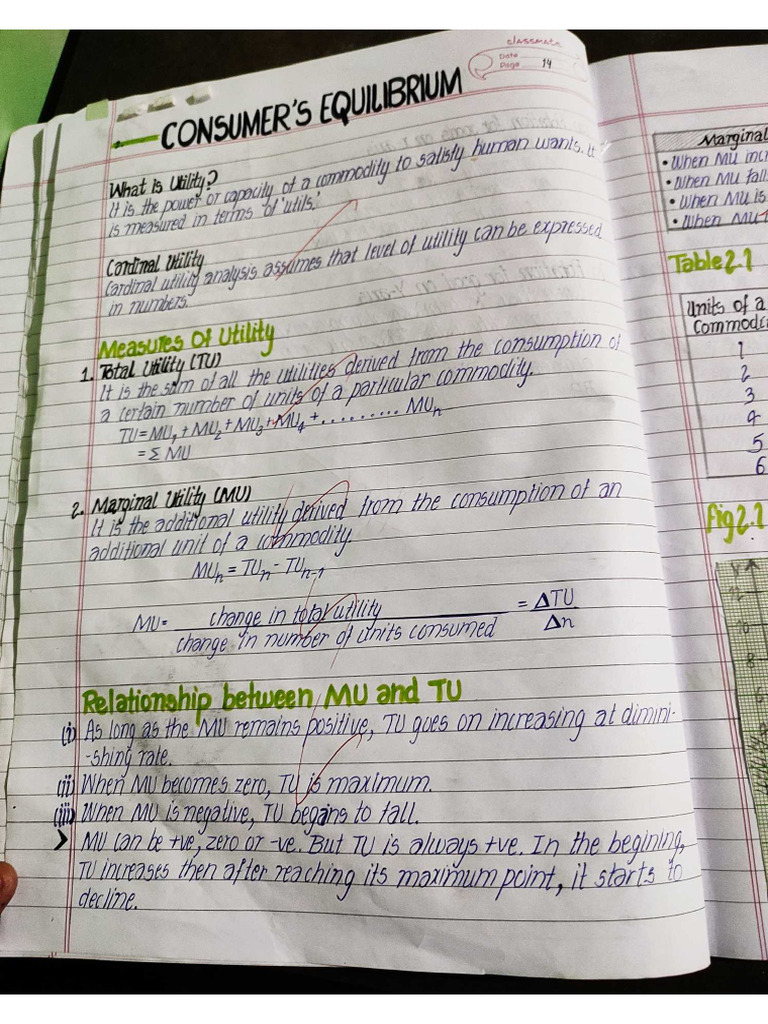 classmate
Date
Page 14
CONSUMER'S EQUILIBRIUM
What is Utility?
It is the power or capacity of a commodity to satisfy human wants. It
is measured in terms of 'utils.'
Cardinal Utility
Cardinal utility analysis assumes that level of utility can be expressed
in numbers.
Measures of Utility
1. Total Utility (TU)
It is the sum of all the utilities derived from the consumption of
a certain number of units of a particular commodity.
TU = MU₁ + MU₂ + MU₃ + MU₄ + .......... MUₙ
= Σ MU
2. Marginal Utility (MU)
It is the additional utility derived from the consumption of an
additional unit of a commodity
MUₙ = TUₙ - TUₙ₋₁
MU = change in total utility = ΔTU
change in number of units consumed Δn
Relationship between MU and TU
(i) As long as the MU remains positive, TU goes on increasing at dimini-
-shing rate.
(ii) When MU becomes zero, TU is maximum.
(iii) When MU is negative, TU begains to fall.
> MU can be +ve, zero or -ve. But TU is always +ve. In the begining,
TU increases then after reaching its maximum point, it starts to
decline.
Marginal
• When MU incr
• When MU fall
• When MU is
• When MU
Table 2.1
Units of a
Commodi
1
2
3
4
5
6
Fig 2.1
Y
12
10
8
6